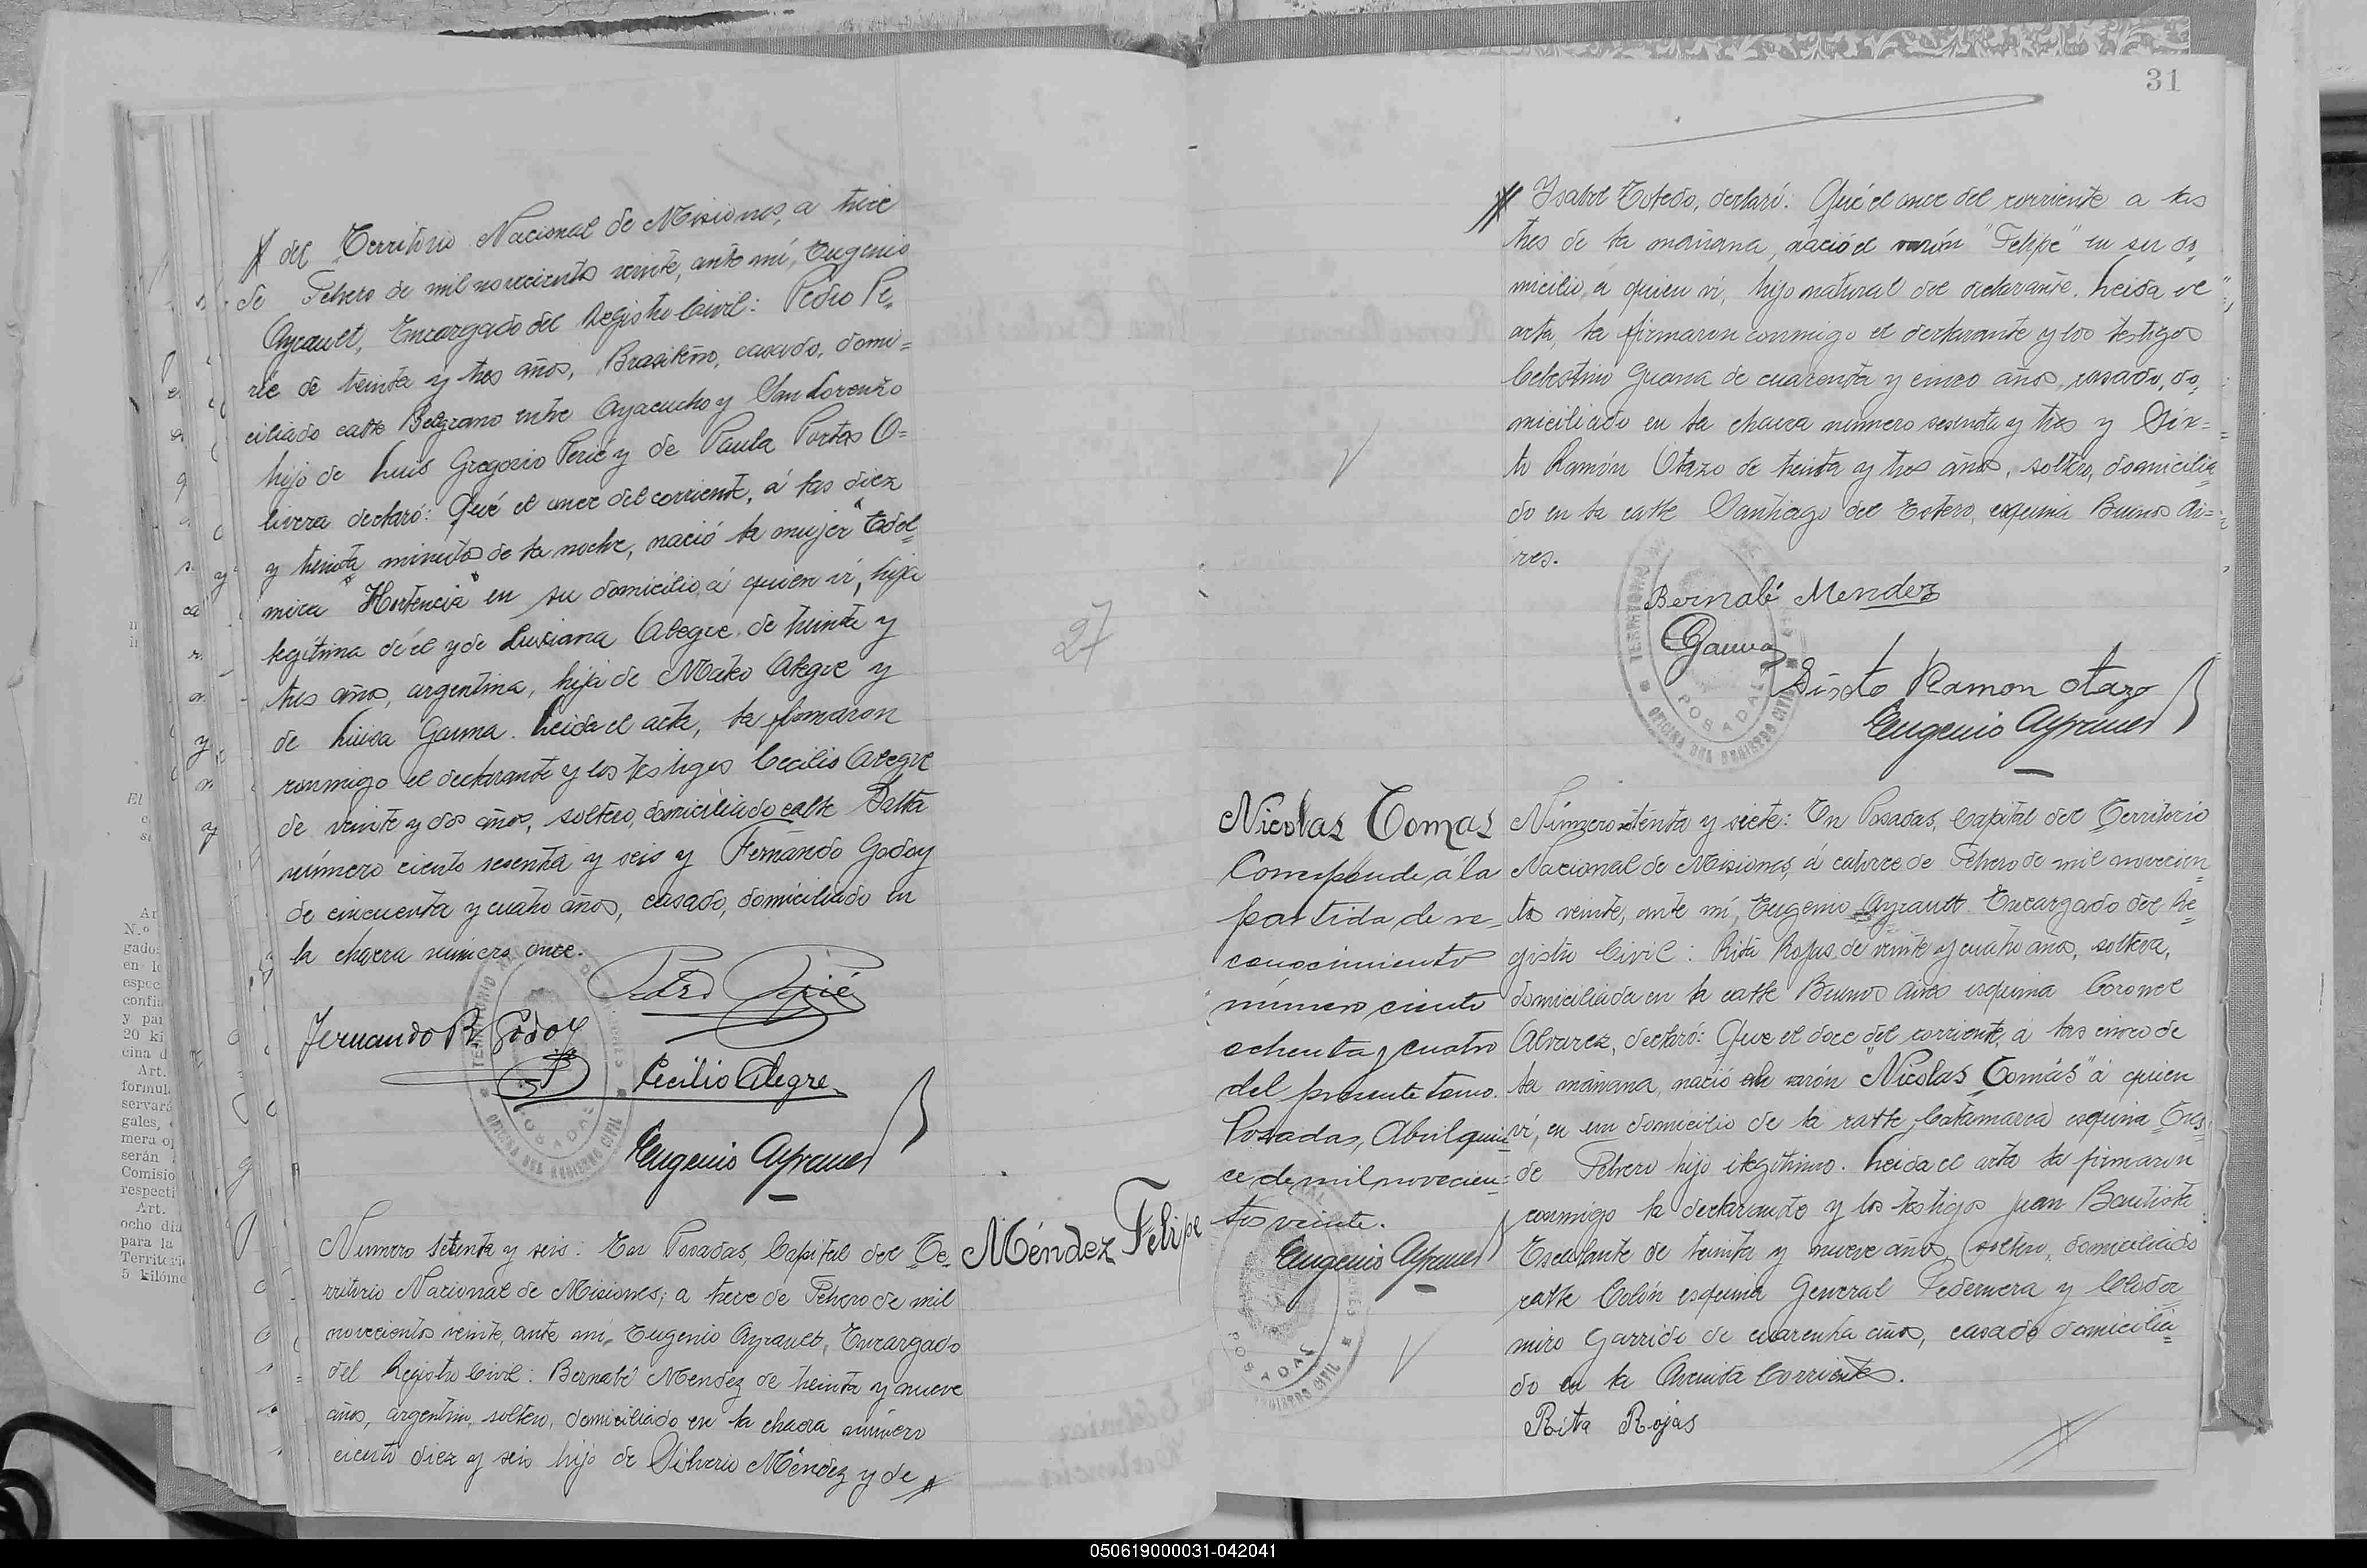 del Territorio Nacional de Misiones, a trece
de Febrero de mil novecientos veinte, ante mí, Eugenio
Ayrault, Encargado del Registro Civil: Pedro Pe=
rié de treinta y tres años, Brasileño, casado, domi=
ciliado calle Belgrano entre Ayacucho y San Lorenzo
hijo de Luis Gregorio Perié y de Paula Portas O=
livera declaró: Qué el once del corriente, á las diez
y treinta minutos de la noche, nació la mujer "Edel=
mira "Hortencia" en su domicilio, á quien ví, hija
legítima de él y de Luisiana Alegre de treinta y
tres años, argentina, hija de Mateo Alegre y
de Luisa Gauna. Leida el acta, la firmaron
conmigo el declarante y los testigos Cecilio Alegre
de veinte y dos años, soltero, domiciliado calle Salta
número ciento sesenta y seis y Fernando Godoy
de cincuenta y cuatro años, casado, domiciliado en
la chacra número once.
Pedro Perié
Fernando R. Godoy
Cecilio Alegre
Eugenio Ayrault
Numero setenta y seis: En Posadas, Capital del Te=
rritorio Nacional de Misiones, a trece de Febrero de mil
novecientos veinte, ante mí, Eugenio Ayrault, Encargado
del Registro Civil: Bernabé Mendez de treinta y nueve
años, argentino, soltero, domiciliado en la chacra número
ciento diez y seis hijo de Silverio Méndez y de
Méndez Felipe
27
31
Ysabel Toledo, declaró: Qué el once del corriente a las
tres de la mañana, nació el varón "Felipe" en su do=
micilio, á quien ví, hijo natural del declarante. Leida el
acta, la firmaron conmigo el declarante y los testigos
Celestino Gauna de cuarenta y cinco años, casado, do=
miciliado en la chacra número sesenta y tres y Six=
to Ramón Otazo de treinta y tres años, soltero, domicilia=
do en la calle Santiago del Estero, esquina Buenos Ai=
res.
Bernabé Mendez
CGauna
Sixto Ramon Otazo
Eugenio Ayrault
TERRITORIO
POSADAS
OFICINA DEL REGISTRO CIVIL
Nicolas Tomas
Corresponde á la
partida de re-
conocimiento
número ciento
ochenta y cuatro
del presente tomo.
Posadas, Abril quin
ce de mil novecien=
tos veinte.
Eugenio Ayrault
Número setenta y siete: En Posadas, Capital del Territorio
Nacional de Misiones, á catorce de Febrero de mil novecien=
tos veinte, ante mí, Eugenio Ayrault Encargado del Re=
gistro Civil: Rita Rojas, de veinte y cuatro años, soltera,
domiciliada en la calle Buenos Aires esquina Coronel
Alvarez, declaró: Que el doce del corriente, á las cinco de
la mañana, nació el varón "Nicolas Tomás" á quien
ví, en un domicilio de la calle Catamarca esquina Tres
de Febrero hijo ilegítimo. Leida el acta la firmaron
conmigo la declarante y los testigos Juan Bautista
Escalante de treinta y nueve años, soltero, domiciliado
calle Colón esquina General Pedernera y Clodo
miro Garrido de cuarenta años, casado domicilia=
do en la Avenida Corrientes.
Rita Rojas
050619000031-042041